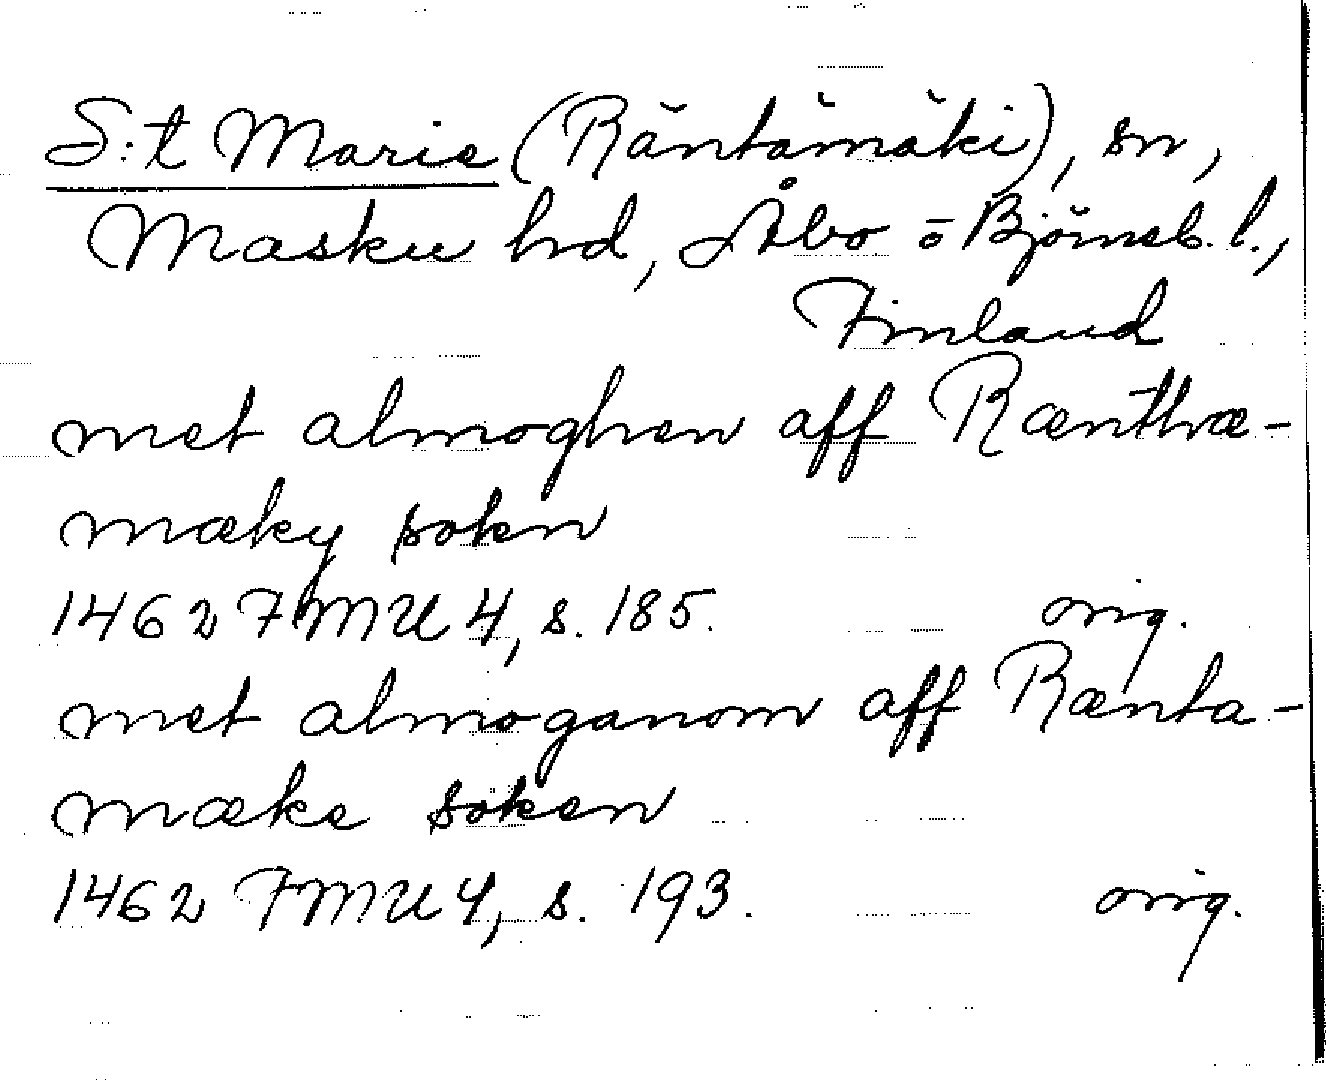 S:t Marie (Räntämäki), sn,
Masku hd, Åbo o Björneb. l.,
Finland
met almoghen aff Rænthæ-
mæky sokn
1462 FMU 4, s. 185. orig.
met almoganom aff Rænta-
mæke soken
1462 FMU 4, s. 193. orig.